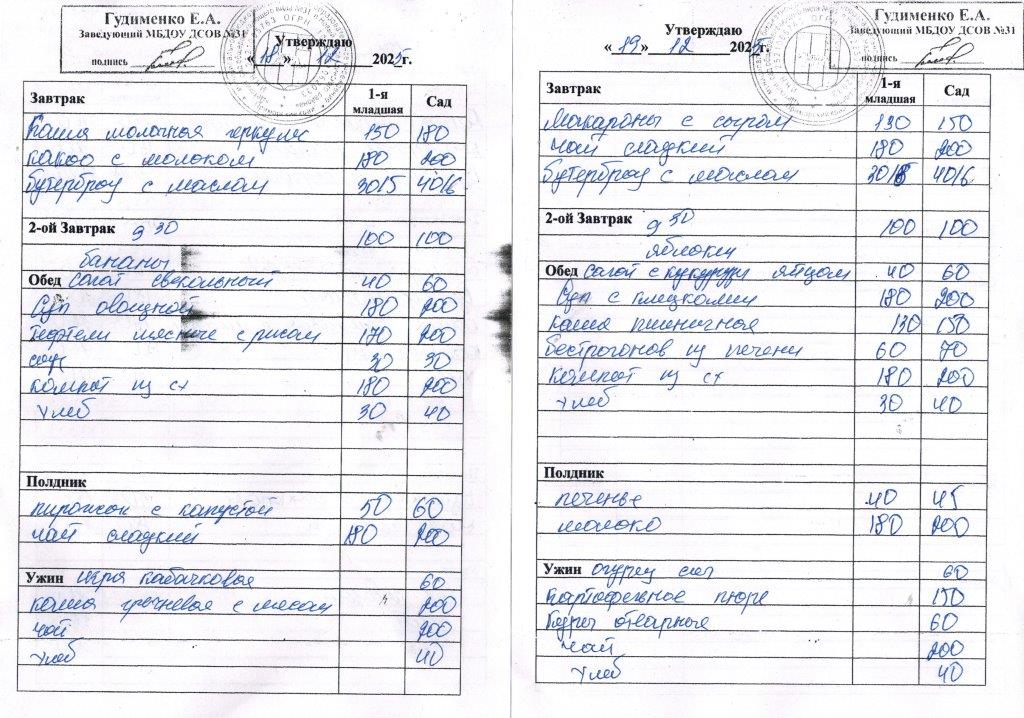 Гудименко Е.А.
Заведующий МБДОУ ДСОВ №31
подпись
Утверждаю
« 18 » 12 2025г.
Завтрак 1-я младшая Сад
Каша молочная геркулес 150 180
какао с молоком 180 200
бутерброд с маслом 30/5 40/6
2-ой Завтрак 9 30 100 100
бананы
Обед салат свекольный 40 60
Суп овощной 180 200
тефтели мясные с рисом 170 200
соус 30 30
компот из сх 180 200
хлеб 30 40
Полдник
пирожок с капустой 50 60
чай сладкий 180 200
Ужин икра кабачковая 60
каша гречневая с мясом 200
чай 200
хлеб 40
Гудименко Е.А.
Заведующий МБДОУ ДСОВ №31
подпись
Утверждаю
« 19 » 12 2025г.
Завтрак 1-я младшая Сад
Макароны с сыром 130 150
чай сладкий 180 200
бутерброд с маслом 30/5 40/6
2-ой Завтрак 9 30 100 100
яблоки
Обед салат с кукурузы яйцом 40 60
Суп с клецками 180 200
каша пшеничная 130 150
бестрогонов из печени 60 70
компот из сх 180 200
хлеб 30 40
Полдник
печенье 40 45
молоко 180 200
Ужин огурец сол 60
картофельное пюре 150
куры отварные 60
чай 200
хлеб 40